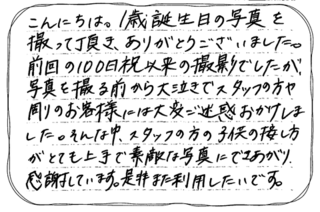 こんにちは。1歳誕生日の写真を
撮って頂き、ありがとうございました。
前回の100日祝以来の撮影でしたが、
写真を撮る前から大泣きでスタッフの方や
周りのお客様には大変ご迷惑おかけしま
した。そんな中、スタッフの方の子供の接し方
がとても上手で素敵な写真にできあがり、
感謝しています。是非また利用したいです。